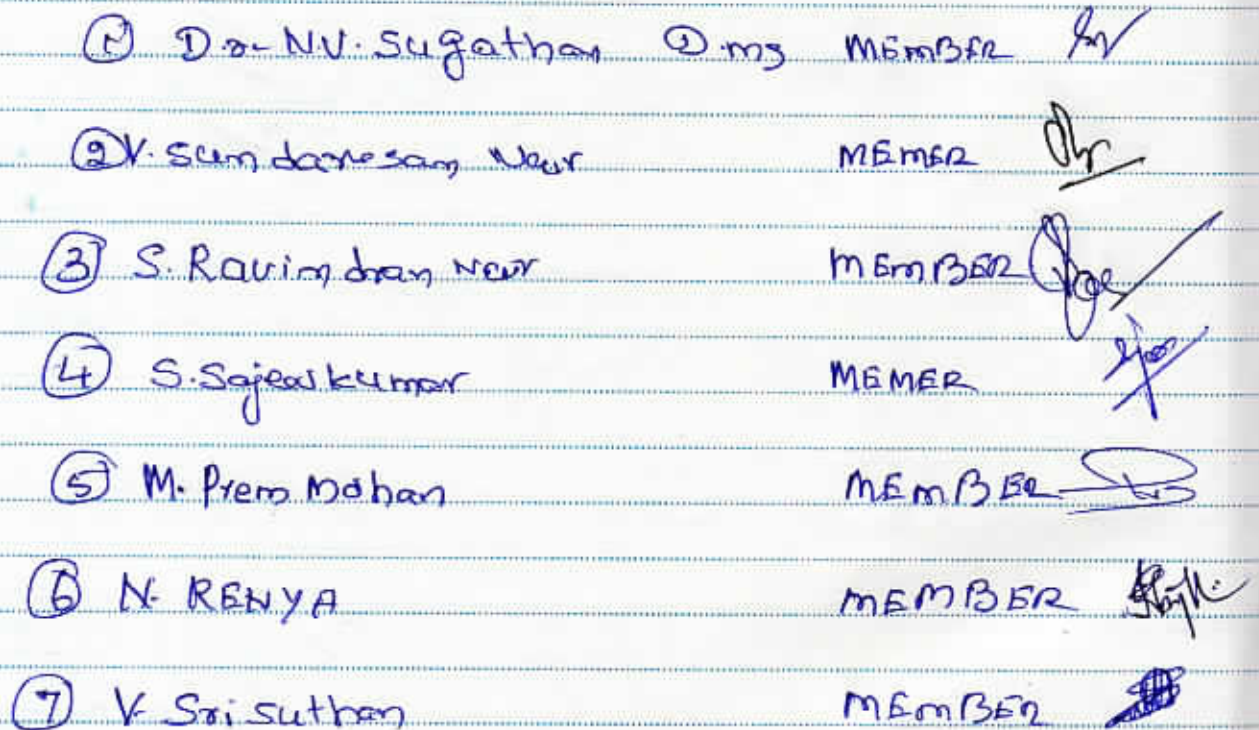 ① Dr. N.V. Sugathan D.ms MEMBER
② V. Sundaresan Nair MEMER
③ S. Ravindran Nair MEMBER
④ S. Sajeevkumar MEMER
⑤ M. Prem Mohan MEMBER
⑥ N. RENYA MEMBER
⑦ V. Srisuthan MEMBER